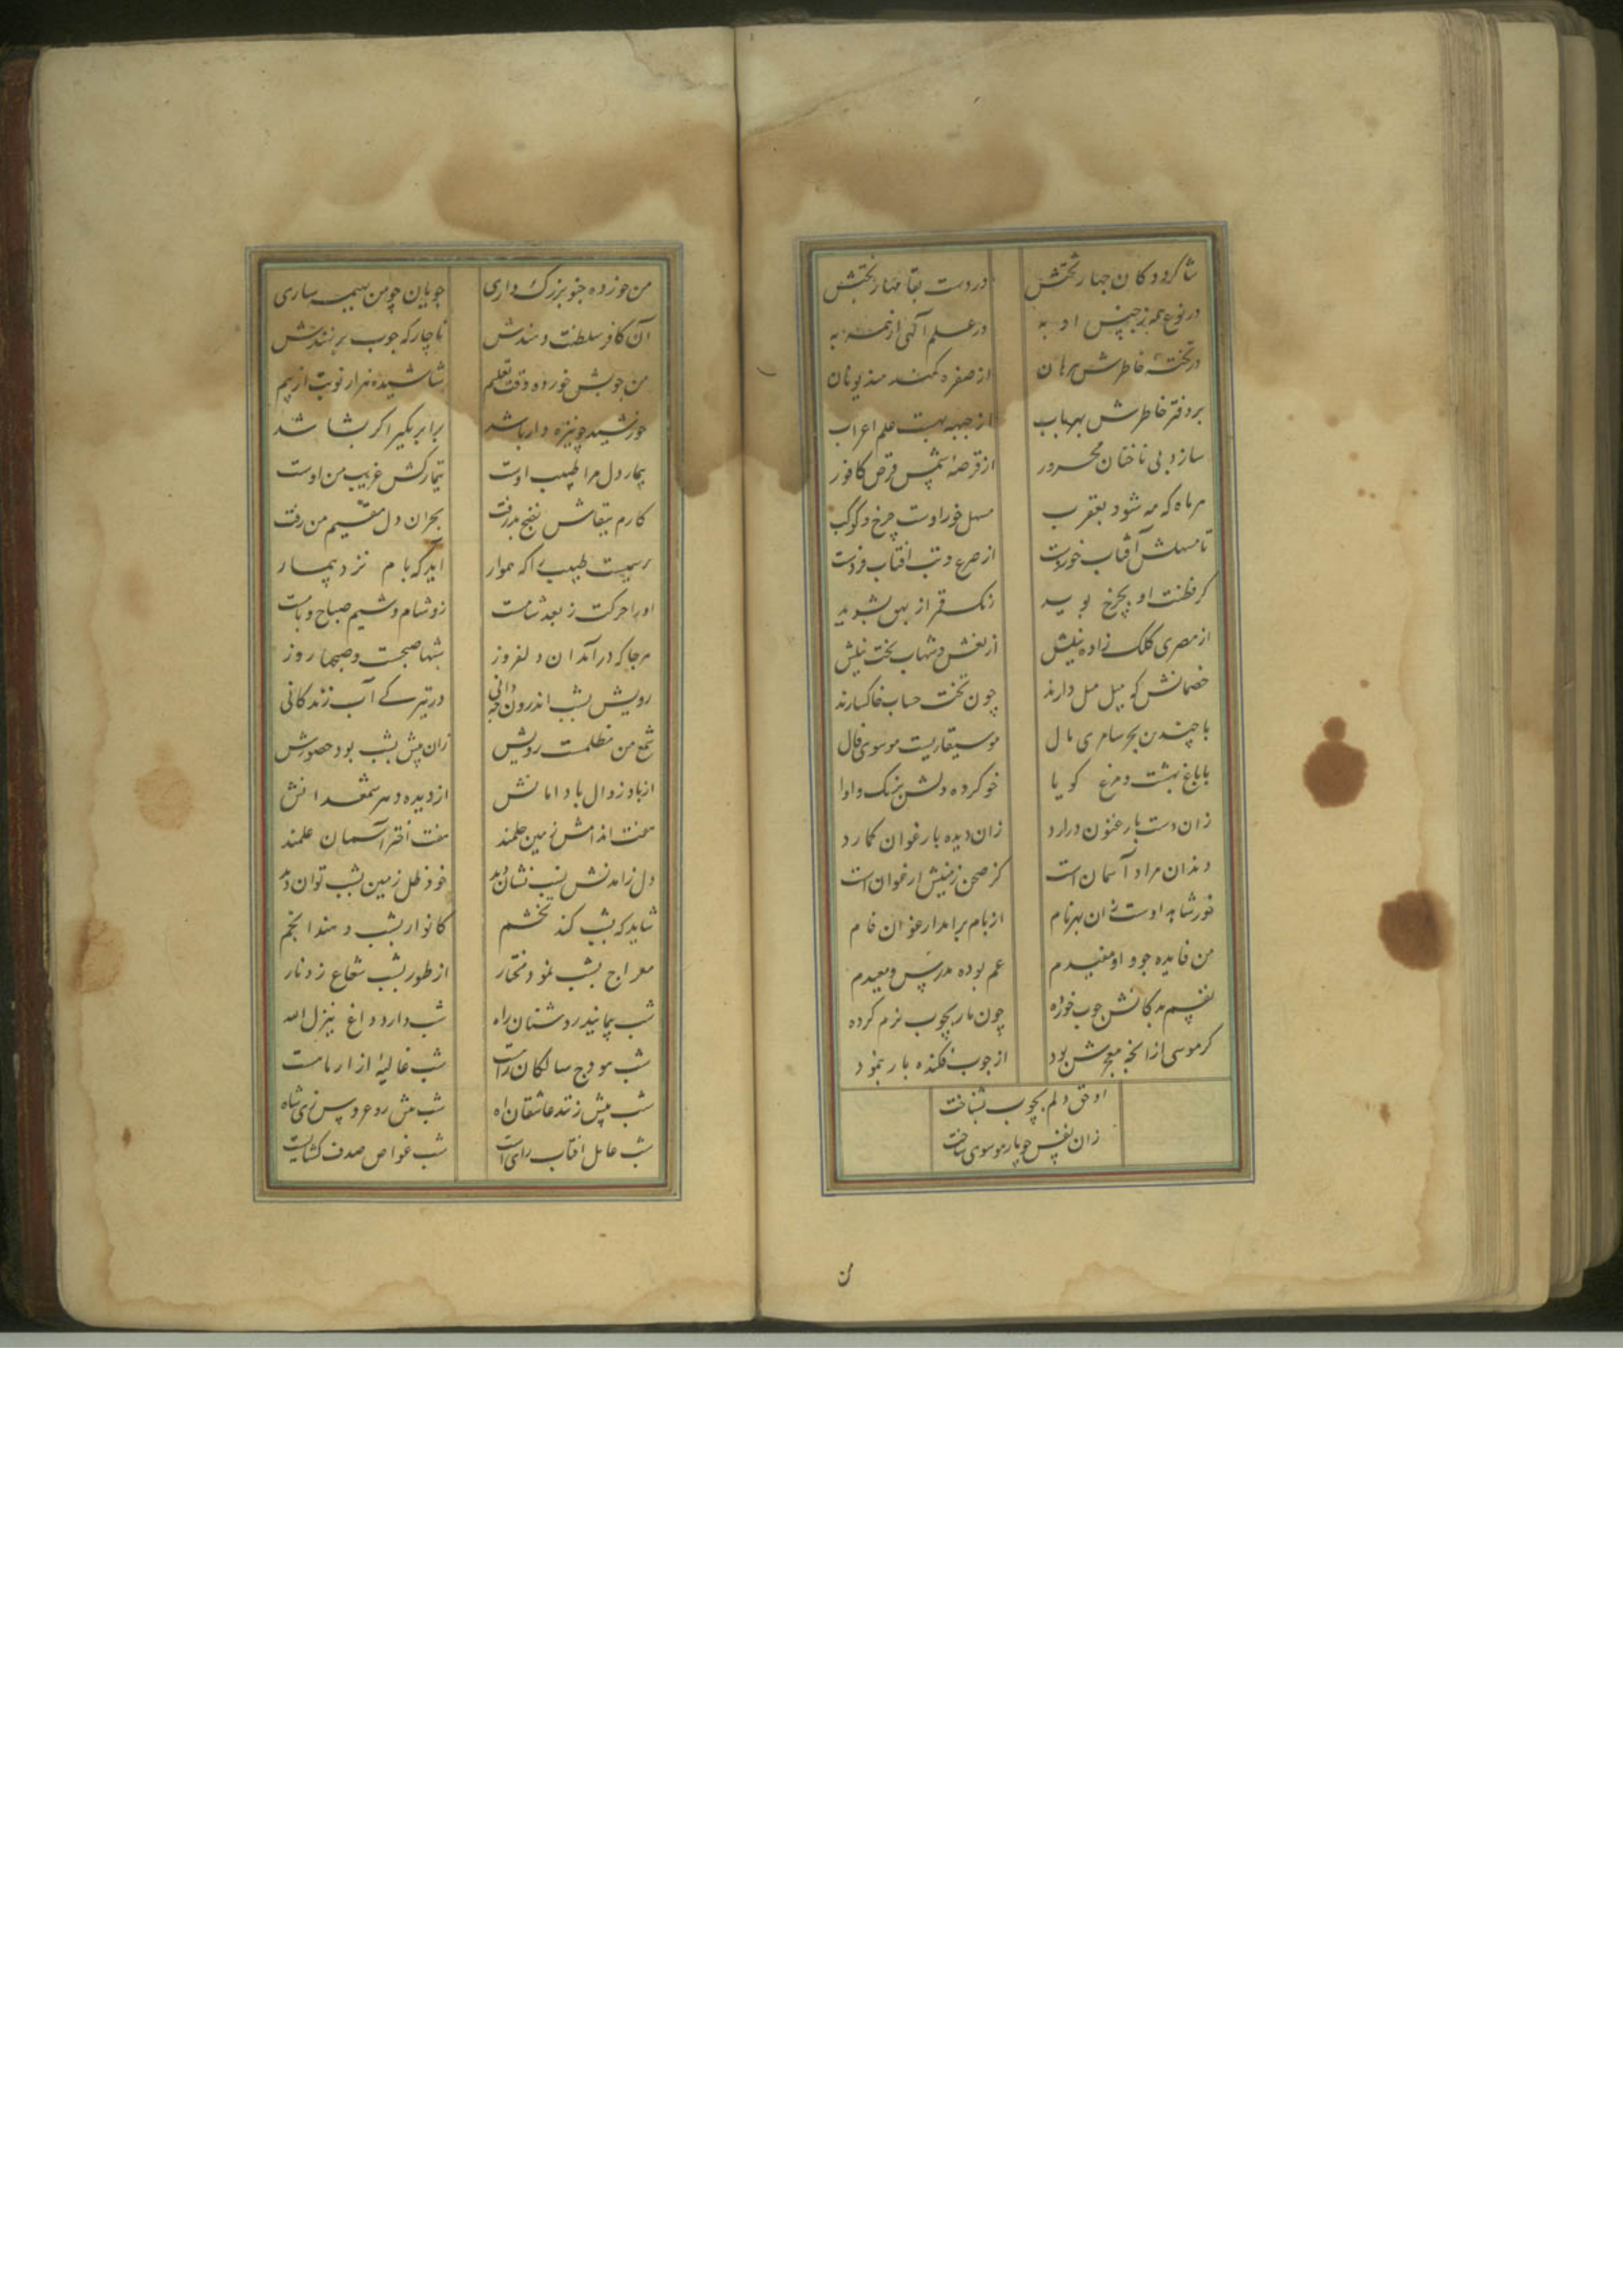 شاکرد دکان چهار تختش در دست بقا مهار بختش
در نوع همه ز جنس او به در علم آلهی از همه به
در تختهٔ خاطرش برهان از صفره کند هند یونان
بر دفتر خاطرش بهر باب از جبهه بهست علم اعراب
سازد بی ناخنان محرور از قرصهٔ شمس قرص کافور
هر ماه که مه شود بعقرب مسهل خور اوست چرخ و کوکب
تا مسهلش آفتاب خوردست از صرع و تب افتاب فردست
کر فطنت او بچرخ پوید رنک قمر از بهق بشوید
از مصری کلک زاده نیلش از نعش و شهاب تخت نیلش
خصمانش کو میل میل دارند چون تخت حساب خاکسارند
با چندین بحر سامری مال موسیقاریست موسوی فال
با باغ بهشت و مرغ کویا خو کرده دلش بزنک و اوا
زان دست بارغنون درارد زان دیده بارغوان کمارد
دندان مراد آسمان است کز صحن زمینش ارغوان است
خورشاید اوست زان بهر نام از بام برامد ارغوان فام
من فایده جو و او مفیدم عم بوده مدرس و معیدم
نفسم بدکانش چوب خورده چون مار بچوب نرم کرده
کر موسی ازانچه معجزش بود از چوب فکنده مار بنمود
او حق دلم بچوب بشناخت
زان نفس چو مار موسوی ساخت
من
من خورده چنو بزرک داری چوپان چو من بهیمه ساری
آن کافسر سلطنت دهندش ناچار که چوب بر نهندش
من چوبش خورده وقت تعلیم شاشیده هزار نوبت از بیم
خورشید چو نیزه دار باشد برابر بکیر اکر بشاشد
بیمار دل مرا طبیب اوست تیمارکش غریب من اوست
کارم بتقاش نضج پذرفت بحران دل سقیم من رفت
رسمیست طبیب را که هموار آید که بام نزد بیمار
او را حرکت ز بعد شامست زو شام و شیم صباح و بامست
هر جا که در آمد آن دلفروز شبها صبحست و صبحها روز
رویش بشب اندرون چه دانی در تیرکی آب زندکانی
شمع من مظلمست رویش زان پیش بشب بود حضورش
از باد زوال باد امانش از دیده و سر شمعدانش
هفت اندامش زمین حلمند هفت اختر آسمان علمند
دل زامدنش بشب نشان دید خود ظل زمین بشب توان دید
شاید که بشب کند تخشم کانوار بشب دهند انجم
معراج بشب نمود مختار از طور بشب شعاع زد نار
شب پیمایند روشنان راه شب دارد داغ ینزل الله
شب هودج سالکان راهست شب غالیهٔ ازار ماهست
شب پیش زنند عاشقان اه شب پیش رود عروس زی شاه
شب عامل افتاب رای است شب غواص صدف کشایست